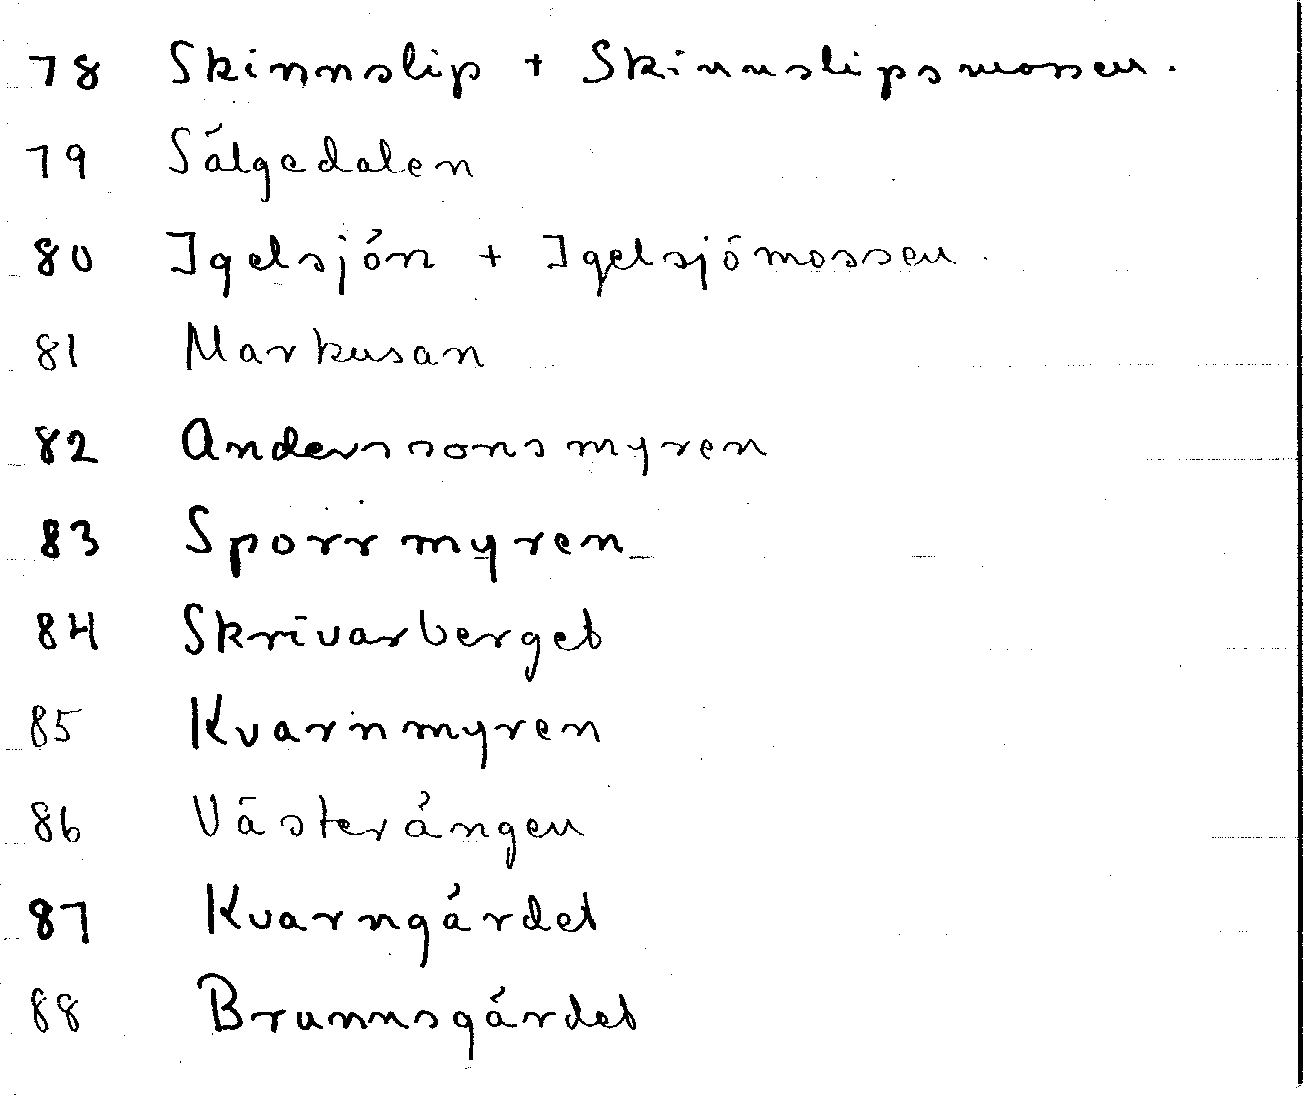 78 Skinnslip + Skinnslipsmossen.
79 Sälgedalen
80 Igelsjön + Igelsjömossen.
81 Markusan
82 Anderssonsmyren
83 Sporrmyren
84 Skrivarberget
85 Kvarnmyren
86 Västerängen
87 Kvarngärdet
88 Brunnsgärdet